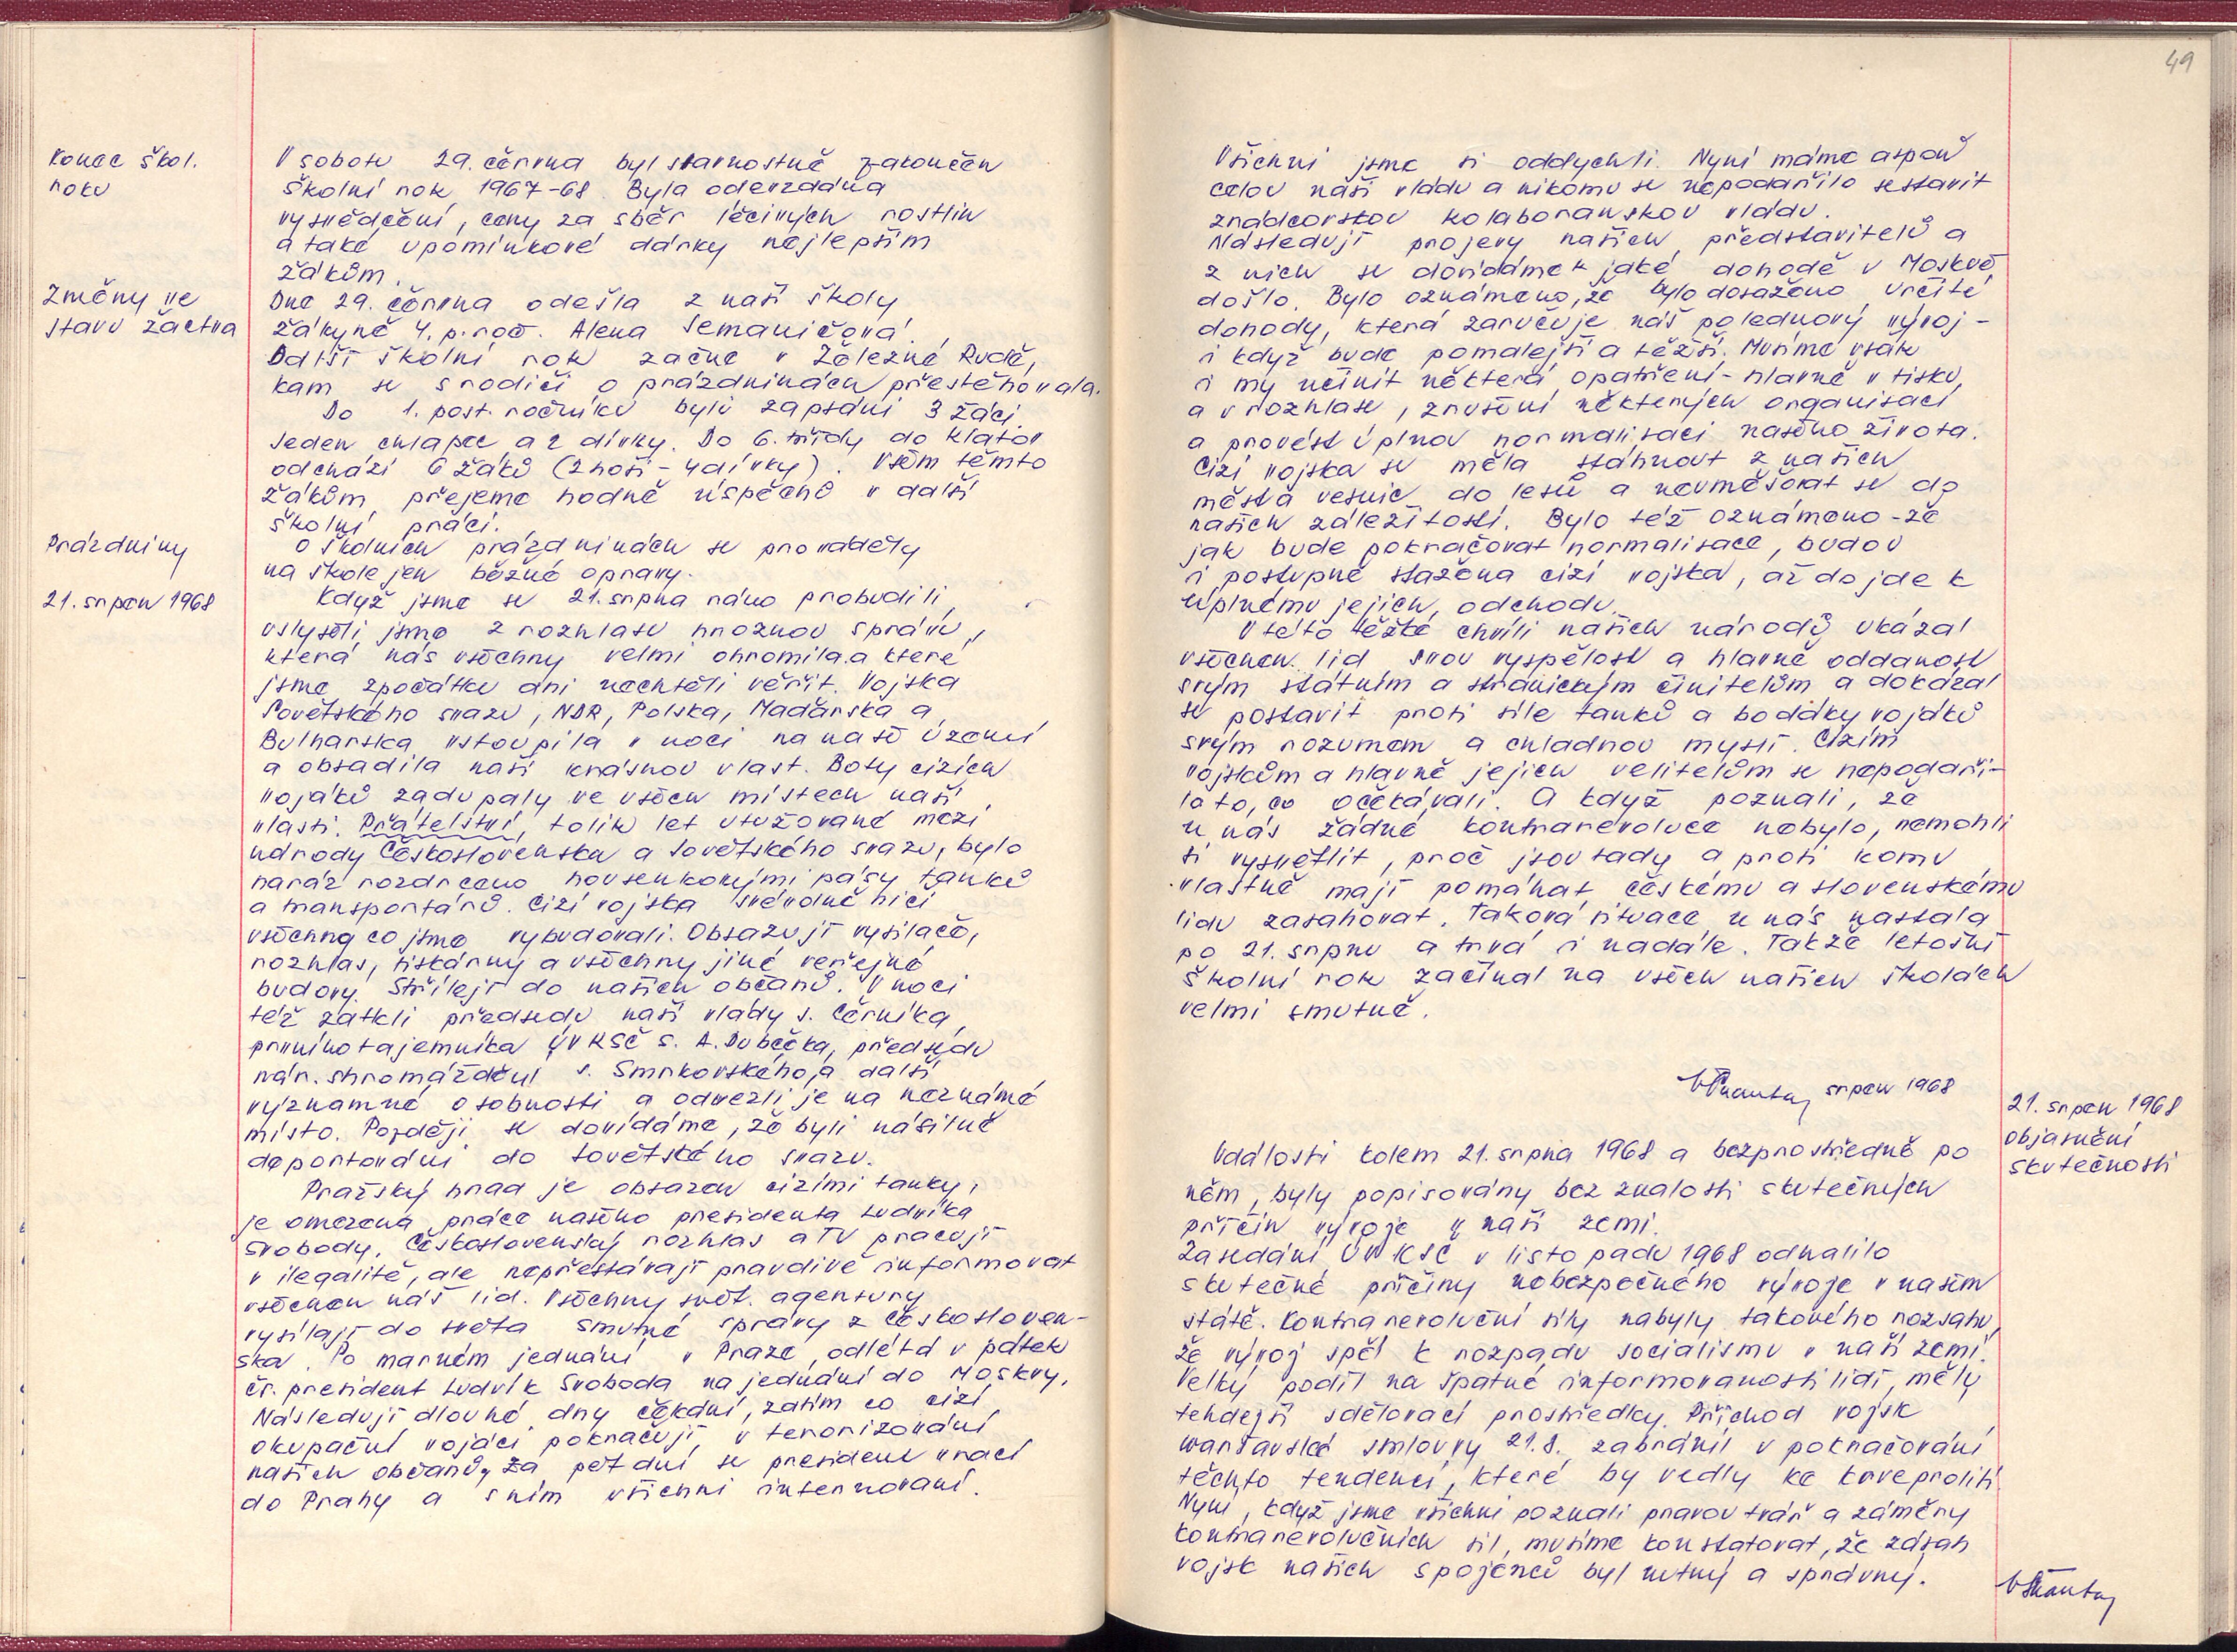 Konec škol.
roku
V sobotu 29. června byl slavnostně zakončen
školní rok 1967-68. Byla odevzdána
vysvědčení, ceny za sběr léčivých rostlin
a také upomínkové dárky nejlepším
žákům.
Změny ve
stavu žactva
Dne 29. června odešla z naší školy
žákyně 4. p. roč. Alena Semaničová.
Další školní rok začne v Železné Rudě,
kam se s rodiči o prázdninách přestěhovala.
Do 1. post. ročníku byli zapsáni 3 žáci
Jeden chlapec a 2 dívky. Do 6. třídy do Klatov
odchází 6 žáků (2 hoši - 4 dívky). Všem těmto
žákům přejeme hodně úspěchů v další
školní práci.
Prázdniny
O školních prázdninách se prováděly
na škole jen běžné opravy.
21. srpen 1968
Když jsme se 21. srpna ráno probudili,
uslyšeli jsme z rozhlasu hroznou správu,
která nás všechny velmi ohromila a které
jsme zpočátku ani nechtěli věřit. Vojska
Sovětského svazu, NDR, Polska, Maďarska a
Bulharska vstoupila v noci na naše území
a obsadila naši krásnou vlast. Boty cizích
vojáků zadupaly ve všech místech naší
vlasti. Přátelství, tolik let utužované mezi
národy Československa a Sovětského svazu, bylo
naráz rozdrceno housenkovými pásy tanků
a transportérů. Cizí vojska svévolně ničí
všechno co jsme vybudovali. Obsazují vysílače,
rozhlas, tiskárny a všechny jiné veřejné
budovy. Střílejí do našich občanů. V noci
též zatkli předsedu naší vlády s. Černíka,
prvního tajemníka ÚV KSČ s. A. Dubčeka, předsedu
nár. shromáždění s. Smrkovského, a další
významné osobnosti a odvezli je na neznámé
místo. Později se dovídáme, že byli násilně
deportováni do Sovětského svazu.
Pražský hrad je obsazen cizími tanky,
je omezena práce našeho presidenta Ludvíka
Svobody. Československý rozhlas a TV pracují
v ilegalitě, ale nepřestávají pravdivě informovat
všechen náš lid. Všechny svět. agentury
vysílají do světa smutné správy z Českosloven-
ska. Po marném jednání v Praze, odlétá v pátek
čs. president Ludvík Svoboda na jednání do Moskvy.
Následují dlouhé dny čekání, zatím co cizí
okupační vojáci pokračují v terorizování
našich občanů. Za pět dní se president vrací
do Prahy a s ním všichni internovaní.
49
Všichni jsme si oddychli. Nyní máme aspoň
celou naši vládu a nikomu se nepodařilo sestavit
zrádcovskou kolaborantskou vládu.
Následují projevy našich představitelů a
z nich se dovídáme k jaké dohodě v Moskvě
došlo. Bylo oznámeno, že bylo dosaženo určité
dohody, která zaručuje náš polednový vývoj -
i když bude pomalejší a těžší. Musíme však
i my učinit některá opatření - hlavně v tisku
a v rozhlase, zrušení některých organisací
a provést úplnou normalisaci našeho života.
Cizí vojska se měla stáhnout z našich
měst a vesnic do lesů a nevměšovat se do
našich záležitostí. Bylo též oznámeno - že
jak bude pokračovat normalisace, budou
i postupně stažena cizí vojska, až dojde k
úplnému jejich odchodu.
V této těžké chvíli našich národů ukázal
všechen lid svou vyspělost a hlavně oddanost
svým státním a stranickým činitelům a dokázal
se postavit proti síle tanků a bodáky vojáků
svým rozumem a chladnou myslí. Cizím
vojskům a hlavně jejich velitelům se nepodaři-
lo to, co očekávali. A když poznali, že
u nás žádné kontrarevoluce nebylo, nemohli
si vysvětlit, proč jsou tady a proti komu
vlastně mají pomáhat českému a slovenskému
lidu zasahovat. Taková situace u nás nastala
po 21. srpnu a trvá i nadále. Takže letošní
školní rok začínal na všech našich školách
velmi smutně.
srpen 1968
21. srpen 1968
objasnění
skutečnosti
Události kolem 21. srpna 1968 a bezprostředně po
něm, byly popisovány bez znalosti skutečných
příčin vývoje v naší zemi.
Zasedání ÚV KSČ v listopadu 1968 odhalilo
skutečné příčiny nebezpečného vývoje v našem
státě. Kontrarevoluční síly nabyly takového rozsahu,
že vývoj spěl k rozpadu socialismu v naší zemi.
Velký podíl na špatné informovanosti lidí, měly
tehdejší sdělovací prostředky. Příchod vojsk
waršavské smlouvy 21.8. zabránil v pokračování
těchto tendencí, které by vedly ke krveprolití
Nyní, když jsme všichni poznali pravou tvář a záměry
kontrarevolučních sil, musíme konstatovat, že zásah
vojsk našich spojenců byl nutný a správný.